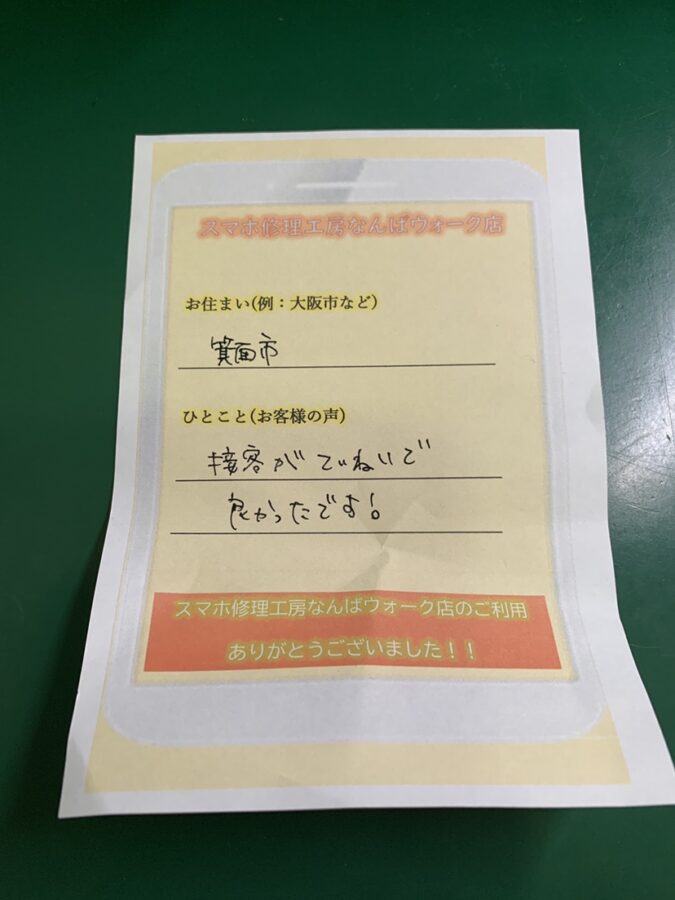 スマホ修理工房なんばウォーク店
お住まい(例：大阪市など)
箕面市
ひとこと(お客様の声)
接客がていねいで
良かったです!
スマホ修理工房なんばウォーク店のご利用
ありがとうございました！！